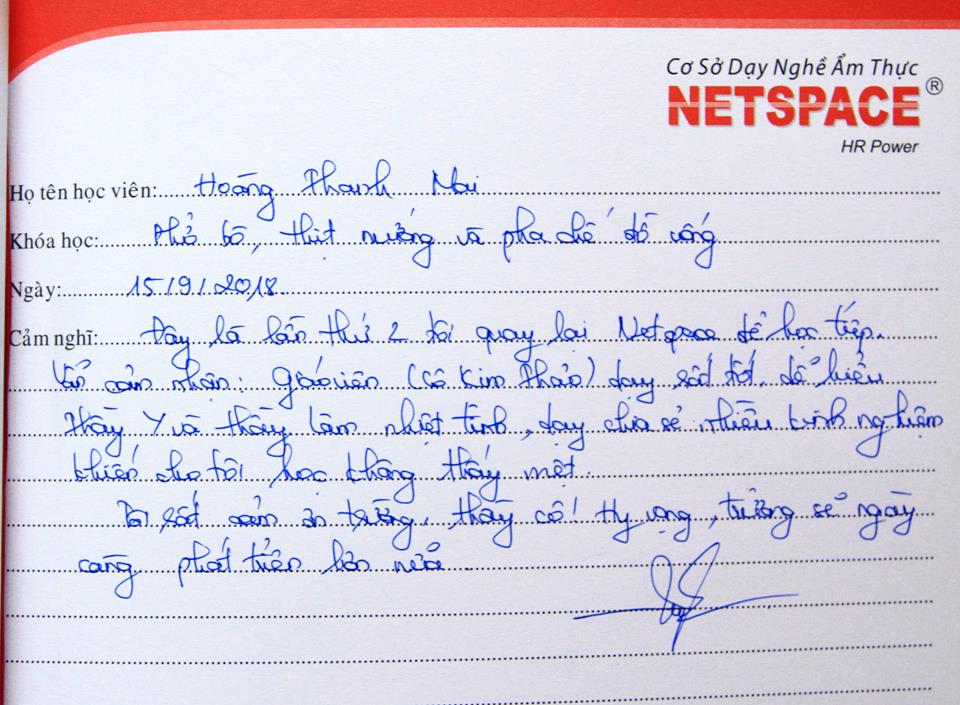 Cơ Sở Dạy Nghề Ẩm Thực
NETSPACE®
HR Power
Họ tên học viên: Hoàng Thanh Mai
Khóa học: Phở bò, thịt nướng và pha chế đồ uống
Ngày: 15/9/2018.
Cảm nghĩ: Đây là lần thứ 2 tôi quay lại Netspace để học tiếp.
Vẫn cảm nhận: Giáo viên (Cô Kim Thảo) dạy rất tốt, dễ hiểu
Thầy Y và thầy Lâm nhiệt tình, dạy chia sẻ nhiều kinh nghiệm
khiến cho tôi học không thấy mệt.
Tôi rất cảm ơn trường, thầy cô! Hy vọng, trường sẽ ngày
càng phát triển hơn nữa.